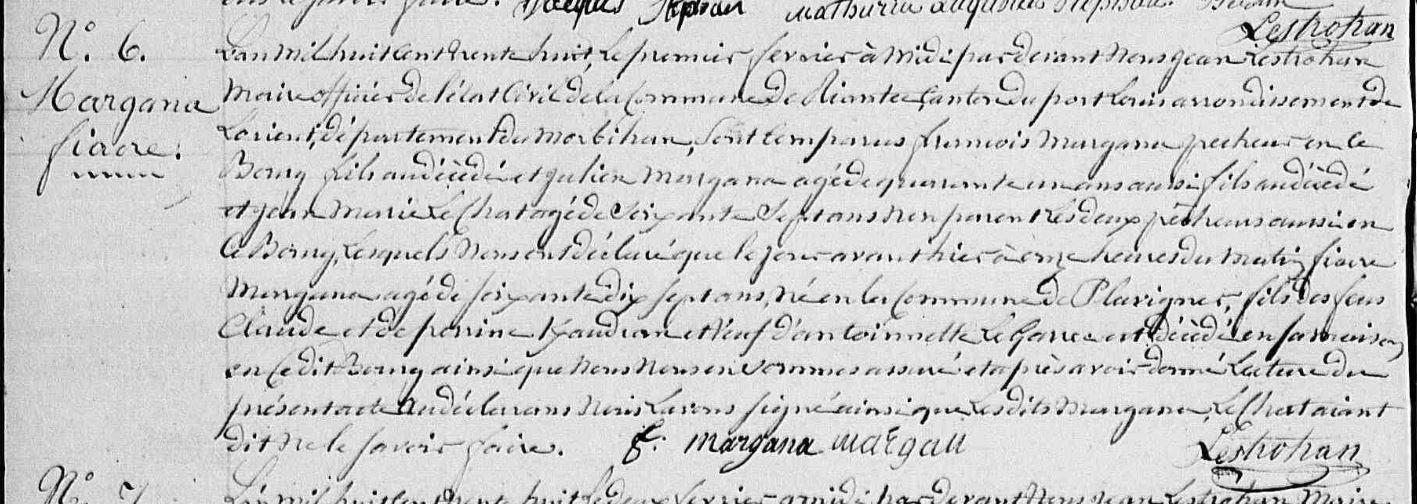 Jacques Stephan Mathurin Augustin Stephan
Lestrohan
N.° 6.
Margana
fiacre.
L'an mil huit cent trente huit, le premier fevrier à midi par devant Nous jean Lestrohan
Maire officier de l'état Civil de la Commune de Riantec, Canton du port Louis arrondissement de
Lorient, département du Morbihan, Sont Comparus francois Margana pecheur en ce
Bourg fils au décédé et julien Margana agé de quarante un ans aussi fils au décédé
et jean Marie Le Chat agé de Soixante Sept ans Non parent Les deux pêcheurs aussi en
Ce Bourg, Lesquels Nous ont déclaré que le jour avant hier à onze heures du Matin fiacre
Margana agé de soixante dix sept ans, Né en la Commune de Pluvigner, fils des feus
Claude et de perrine Kaudran et Veuf d'antoinnette Le Garrec est décédé en sa maison
en Cedit Bourg ainsi que Nous Nous en Sommes assuré et après avoir donné Lecture du
présent acte Aux déclarans Nous L'avons signé ainsi que Lesdits Margana, Le Chat aiant
dit Ne le savoir faire. f. margana margan
Lestrohan
N.° 7.
L'an mil huit cent trente huit Le deux fevrier a midi par devant Nous jean Lestrohan Maire